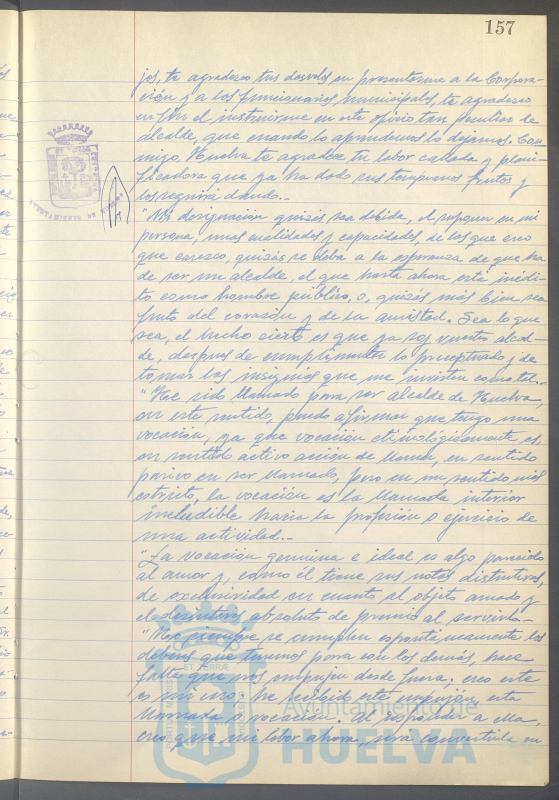 157
jos, te agradezco tus desvelos en presentarme a la Corpora-
ción y a los funcionarios municipales, te agradezco
en fin el instruirme en este oficio tan peculiar de
alcalde, que cuando lo aprendemos lo dejamos. Con-
migo, Huelva te agradece tu labor callada y plani-
ficadora que ya ha dado sus tempranos frutos y
los seguirá dando..-
"Mi designación quizás sea debida, al suponer en mi
persona, unas cualidades y capacidades, de las que creo
que carezco, quizás se deba a la esperanza de que ha
de ser un alcalde, el que hasta ahora está inédi-
to como hombre público, o, quizás más bien sea
fruto del corazón y de la amistad. Sea lo que
sea, el hecho cierto es que ya soy vuestro alcal-
de, después de cumplimentar lo preceptuado y de
tomar las insignias que me invisten como tal.-
"He sido llamado para ser alcalde de Huelva,
en este sentido, puedo afirmar que tengo una
vocación, ya que vocación etimológicamente es
en sentido activo acción de llamar, en sentido
pasivo en ser llamado, pero en un sentido más
estricto, la vocación es la llamada interior
ineludible hacia la profesión o ejercicio de
una actividad..-
"La vocación genuina e ideal es algo parecido
al amor y, como él tiene sus notas distintivas,
de exclusividad en cuanto al objeto amado y
el desinterés absoluto de premio al servirlo.-
"No siempre se cumplen espontáneamente los
deberes que tenemos para con los demás, hace
falta que nos empujen desde fuera; creo este
es mi caso: he recibido este empujón esta
llamada o vocación. Al responder a ella,
creo que mi labor ahora, será convertirla en
AYUNTAMIENTO DE HUELVA
Ayuntamiento de
HUELVA